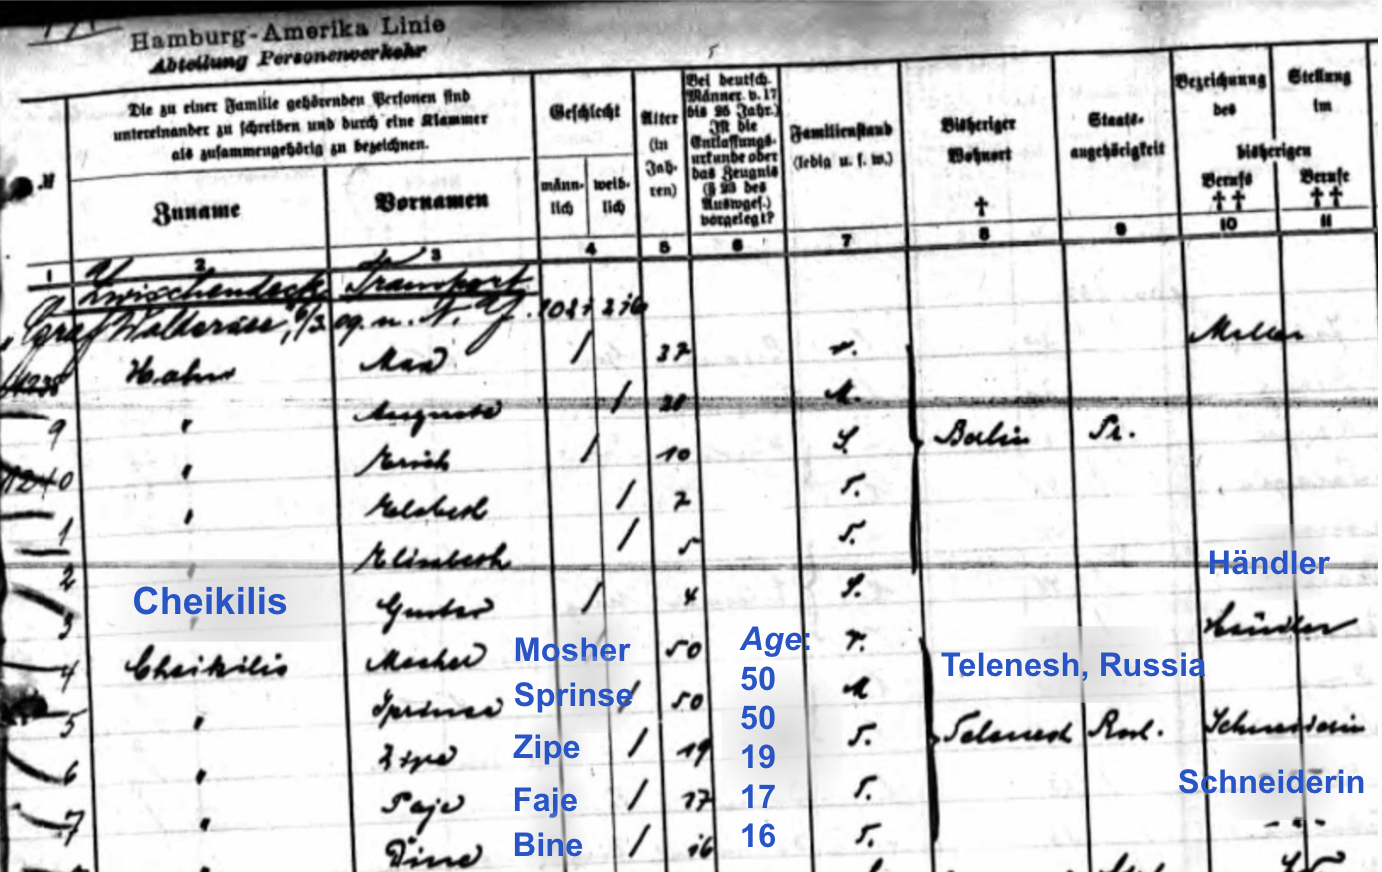 Hamburg-Amerika Linie
Abteilung Personenverkehr
Die zu einer Familie gehörenden Personen sind
untereinander zu schreiben und durch eine Klammer
als zusammengehörig zu bezeichnen.
Zuname
Vornamen
Geschlecht
männ-
lich
weib-
lich
Alter
(in
Jah-
ren)
Bei deutsch.
Männer. v. 17
bis 25 Jahr.)
Ist die
Entlassungs-
urkunde oder
das Zeugnis
(§ 23 des
Auswges.)
vorgelegt?
Familienstand
(ledig u. s. w.)
Bisheriger
Wohnort
†
Staats-
angehörigkeit
Bezeichnung
des
Stellung
im
bisherigen
Berufs
††
Berufe
††
1 2 3 4 5 6 7 8 9 10 11
Zwischendeck Transport
Graf Waldersee, 6/3 09 n. N. Y.
Hahn Max / 37 Berlin Pr.
" Auguste / M.
9 " Erich / 10 S.
1240 " / 7 S.
1 Elisabeth / 5 S.
2 Gustav / 4 S.
3 Cheikilis Mosher / 50 Händler
4 " Sprinse / 50 M
5 " Zipe / 19 S. Telenesh Russl. Schneiderin
6 " Faje / 17 S. - " -
7 Bine / 16 S. - " -
Cheikilis
Mosher
Sprinse
Zipe
Faje
Bine
Age:
50
50
19
17
16
Telenesh, Russia
Händler
Schneiderin